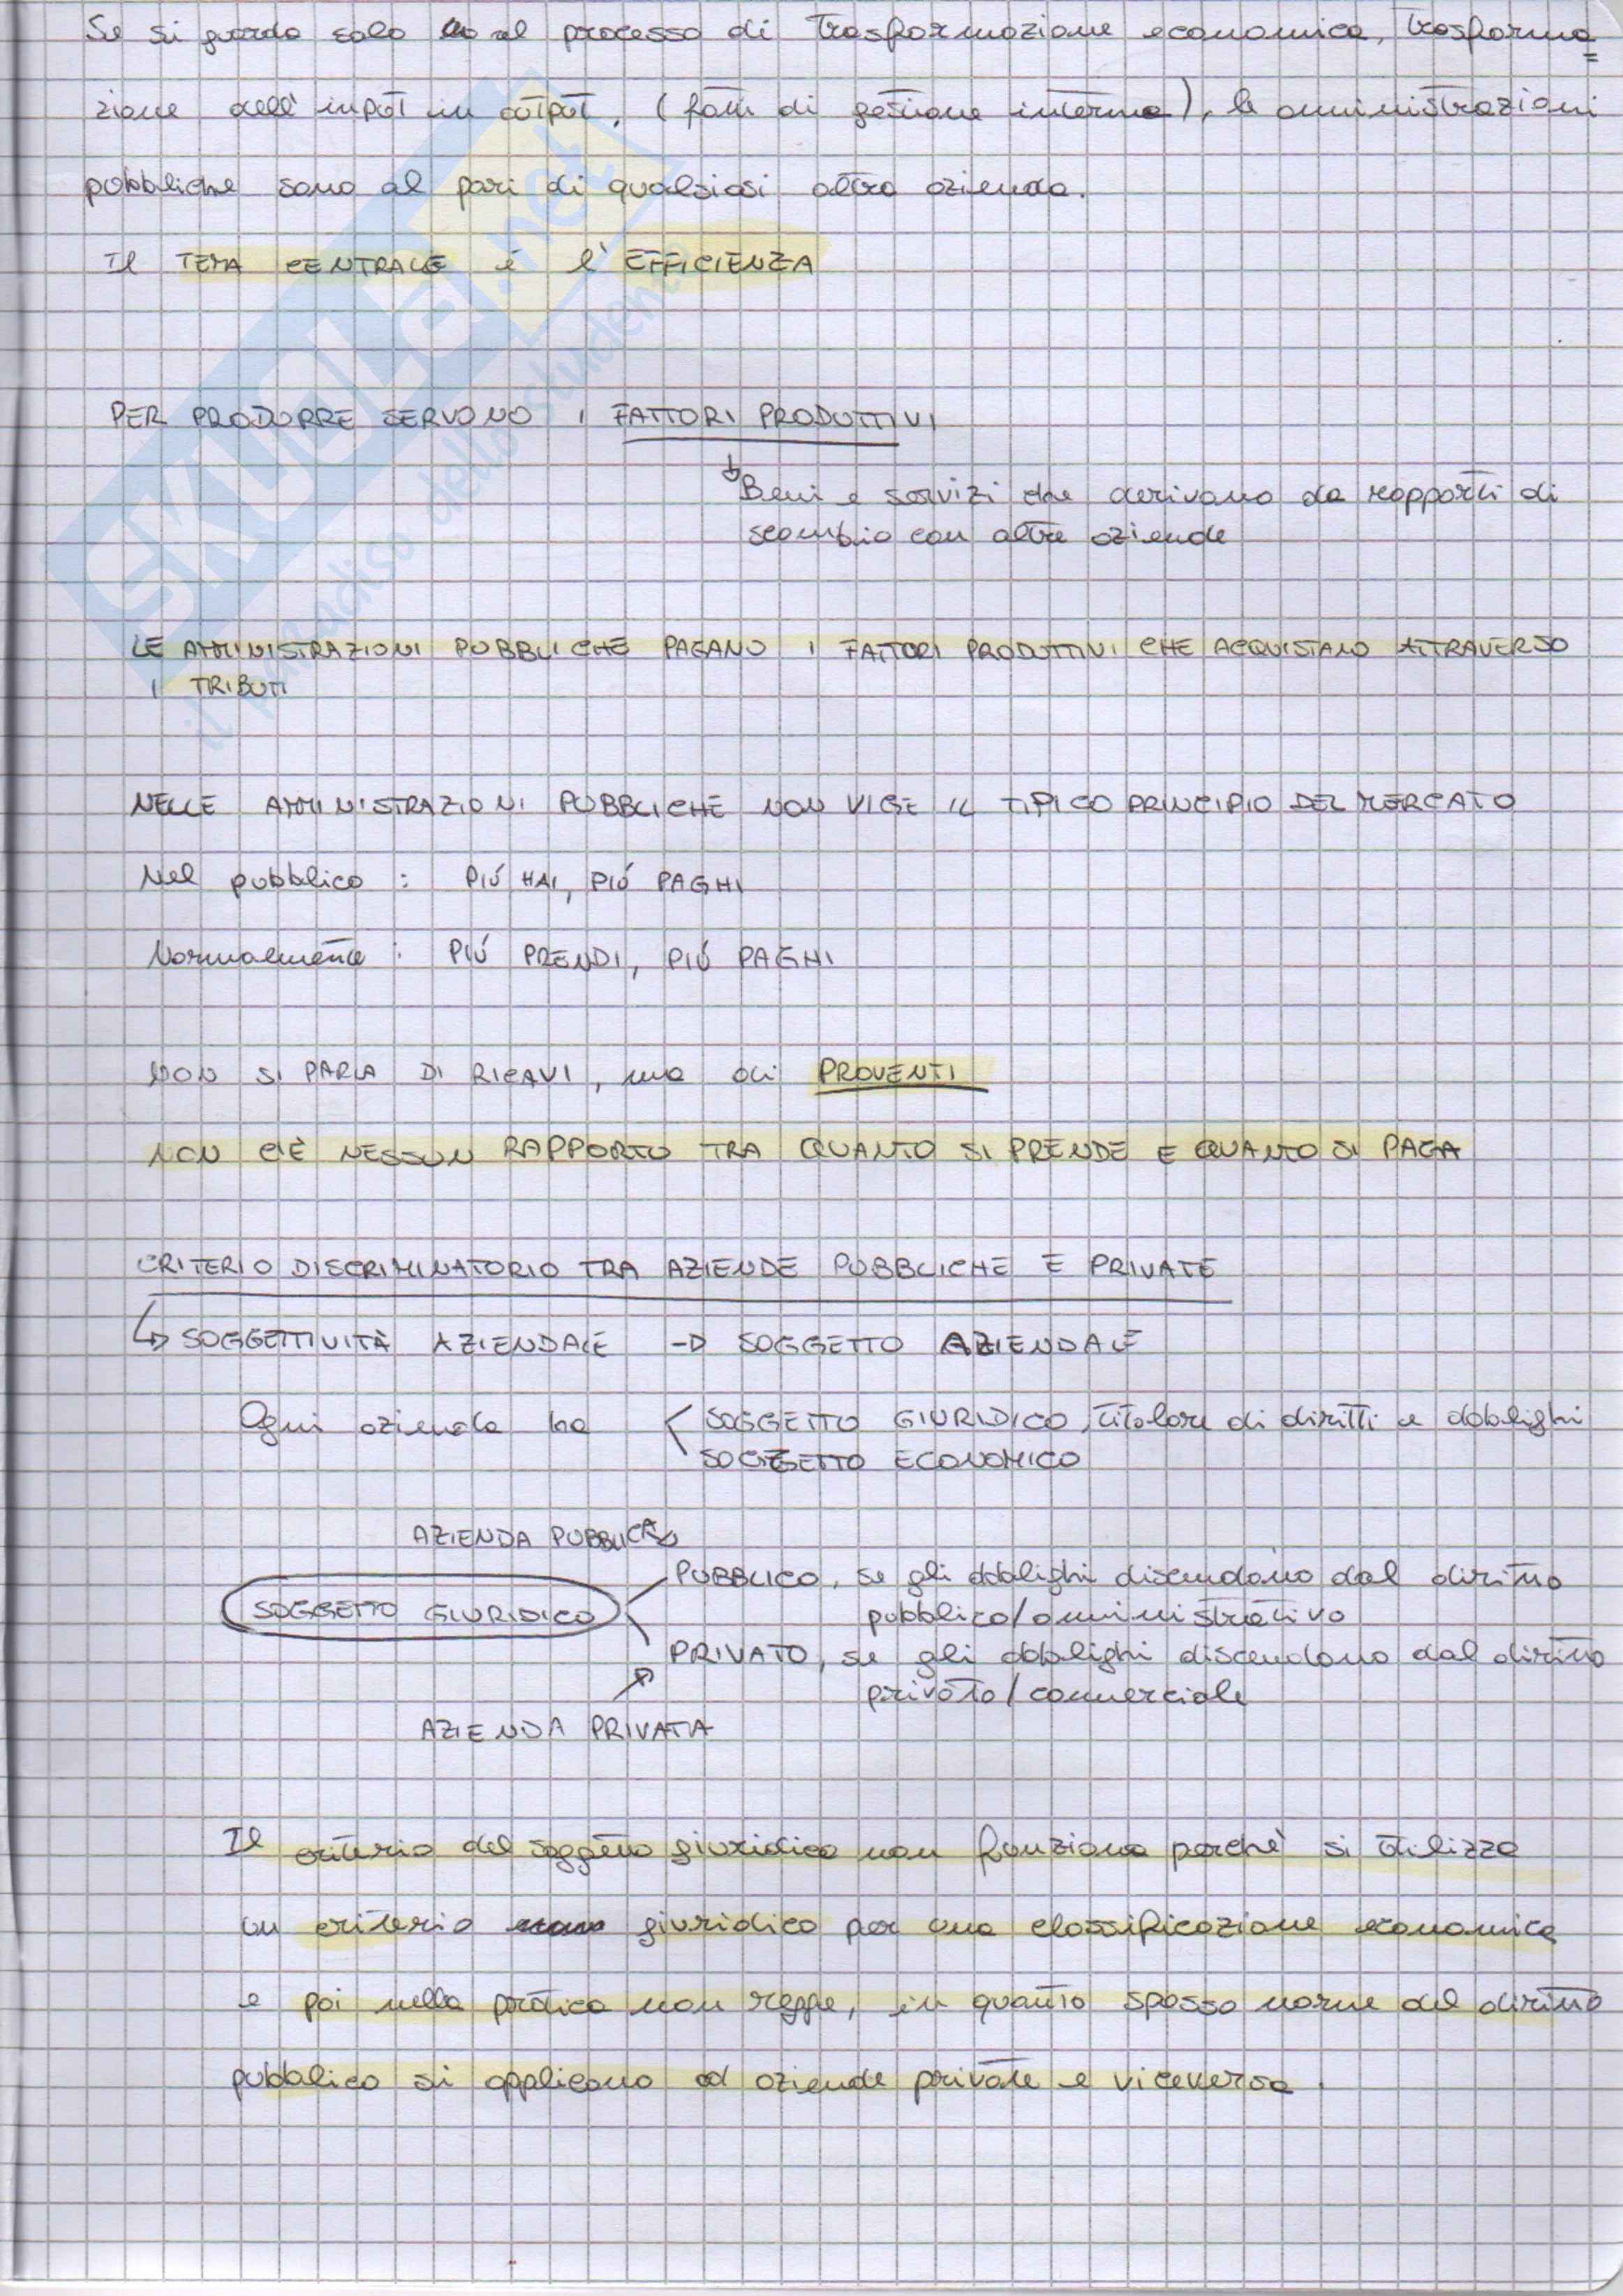 Se si guarda solo al processo di trasformazione economica, trasforma=
zione dell'input in output, (fatti di gestione interna), le amministrazioni
pubbliche sono al pari di qualsiasi altra azienda.
Il TEMA CENTRALE è l'EFFICIENZA
PER PRODURRE SERVONO I FATTORI PRODUTTIVI
Beni e servizi che derivano da rapporti di
scambio con altre aziende
LE AMMINISTRAZIONI PUBBLICHE PAGANO I FATTORI PRODUTTIVI CHE ACQUISTANO ATTRAVERSO
I TRIBUTI
NELLE AMMINISTRAZIONI PUBBLICHE NON VIGE IL TIPICO PRINCIPIO DEL MERCATO
Nel pubblico : PIÚ HAI, PIÚ PAGHI
Normalmente : PIÚ PRENDI, PIÚ PAGHI
NON SI PARLA DI RICAVI, ma di PROVENTI
NON C'È NESSUN RAPPORTO TRA QUANTO SI PRENDE E QUANTO SI PAGA
CRITERIO DISCRIMINATORIO TRA AZIENDE PUBBLICHE E PRIVATE
↳ SOGGETTIVITÀ AZIENDALE → SOGGETTO AZIENDALE
Ogni azienda ha < SOGGETTO GIURIDICO, titolare di diritti e obblighi
SOGGETTO ECONOMICO
AZIENDA PUBBLICA
PUBBLICO, se gli obblighi discendono dal diritto
pubblico/amministrativo
SOGGETTO GIURIDICO
PRIVATO, se gli obblighi discendono dal diritto
privato/commerciale
AZIENDA PRIVATA
Il criterio del soggetto giuridico non funziona perchè si utilizza
un criterio giuridico per una classificazione economica
e poi nella pratica non regge, in quanto spesso norme del diritto
pubblico si applicano ad aziende private e viceversa.
SKUOLA.net
il paradiso dello studente